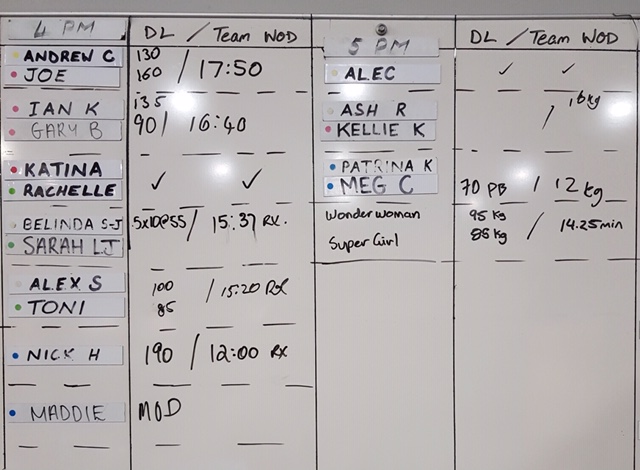 4 PM DL / Team WOD
ANDREW C 130
JOE 160 / 17:50
IAN K 135
GARY B 90 / 16:40
KATINA
RACHELLE ✓ ✓
BELINDA S-J 5x10@55 / 15:37 RX.
SARAH LJ
ALEX S 100 / 15:20 RX
TONI 85
NICK H 190 / 12:00 RX
MADDIE MOD
5 PM DL / Team WOD
ALEC ✓ ✓
ASH R / 16kg
KELLIE K
PATRINA K
MEG C 70 PB / 12 kg
Wonder woman 95 kg / 14.25min
Super Girl 85 kg